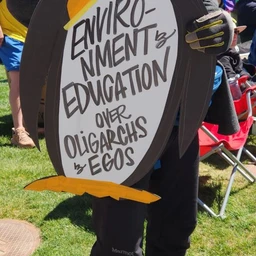 ENVIRO-
NMENT &
EDUCATION
OVER
OLIGARCHS
& EGOS